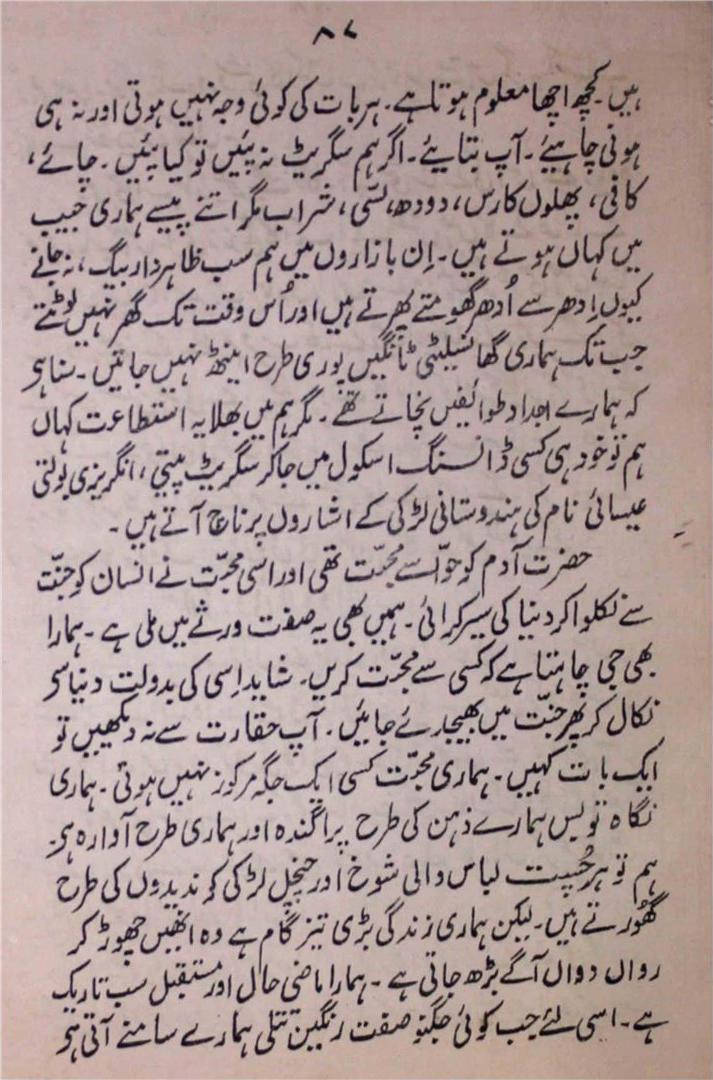 ۸۷
ہیں۔ کچھ اچھا معلوم ہوتا ہے۔ ہر بات کی کوئی وجہ نہیں ہوتی اور نہ ہی
ہونی چاہیئے۔ آپ بتایئے۔ اگر ہم سگریٹ نہ پئیں تو کیا پئیں۔ چائے،
کافی، پھلوں کا رس، دودھ، لسّی، شراب مگر اتنے پیسے ہماری جیب
میں کہاں ہوتے ہیں۔ اِن بازاروں میں ہم سب ظاہردار بیگ، نہ جانے
کیوں اِدھر سے اُدھر گھومتے پھرتے ہیں اور اُس وقت تک گھر نہیں لوٹتے
جب تک ہماری گھاسلیٹی ٹانگیں پوری طرح اینٹھ نہیں جاتیں۔ سنا ہو
کہ ہمارے اجداد طوائفیں نچاتے تھے۔ مگر ہم میں بھلا یہ استطاعت کہاں
ہم تو خود ہی کسی ڈانسنگ اسکول میں جا کر سگریٹ پیتی، انگریزی بولتی
عیسائی نام کی ہندوستانی لڑکی کے اشاروں پر ناچ آتے ہیں۔
حضرت آدم کو حوّا سے محبّت تھی اور اسی محبّت نے انسان کو جنّت
سے نکلوا کر دنیا کی سیر کرائی۔ ہمیں بھی یہ صفت ورثے میں ملی ہے۔ ہمارا
بھی جی چاہتا ہے کہ کسی سے محبّت کریں۔ شاید اِسی کی بدولت دنیا سو
نکال کر پھر جنّت میں بھیجدئے جائیں۔ آپ حقارت سے نہ دیکھیں تو
ایک بات کہیں۔ ہماری محبّت کسی ایک جگہ مرکوز نہیں ہوتی۔ ہماری
نگاہ تو بس ہمارے ذہن کی طرح پراگندہ اور ہماری طرح آوارہ ہی۔
ہم تو ہر چُست لباس والی شوخ اور چنچل لڑکی کو ندیدوں کی طرح
گھُورتے ہیں۔ لیکن ہماری زندگی بڑی تیز گام ہے وہ انھیں چھوڑ کر
رواں دواں آگے بڑھ جاتی ہے۔ ہمارا ماضی حال اور مستقبل سب تاریک
ہے۔ اسی لئے جب کوئی جگنو صفت رنگین تتلی ہمارے سامنے آتی ہو